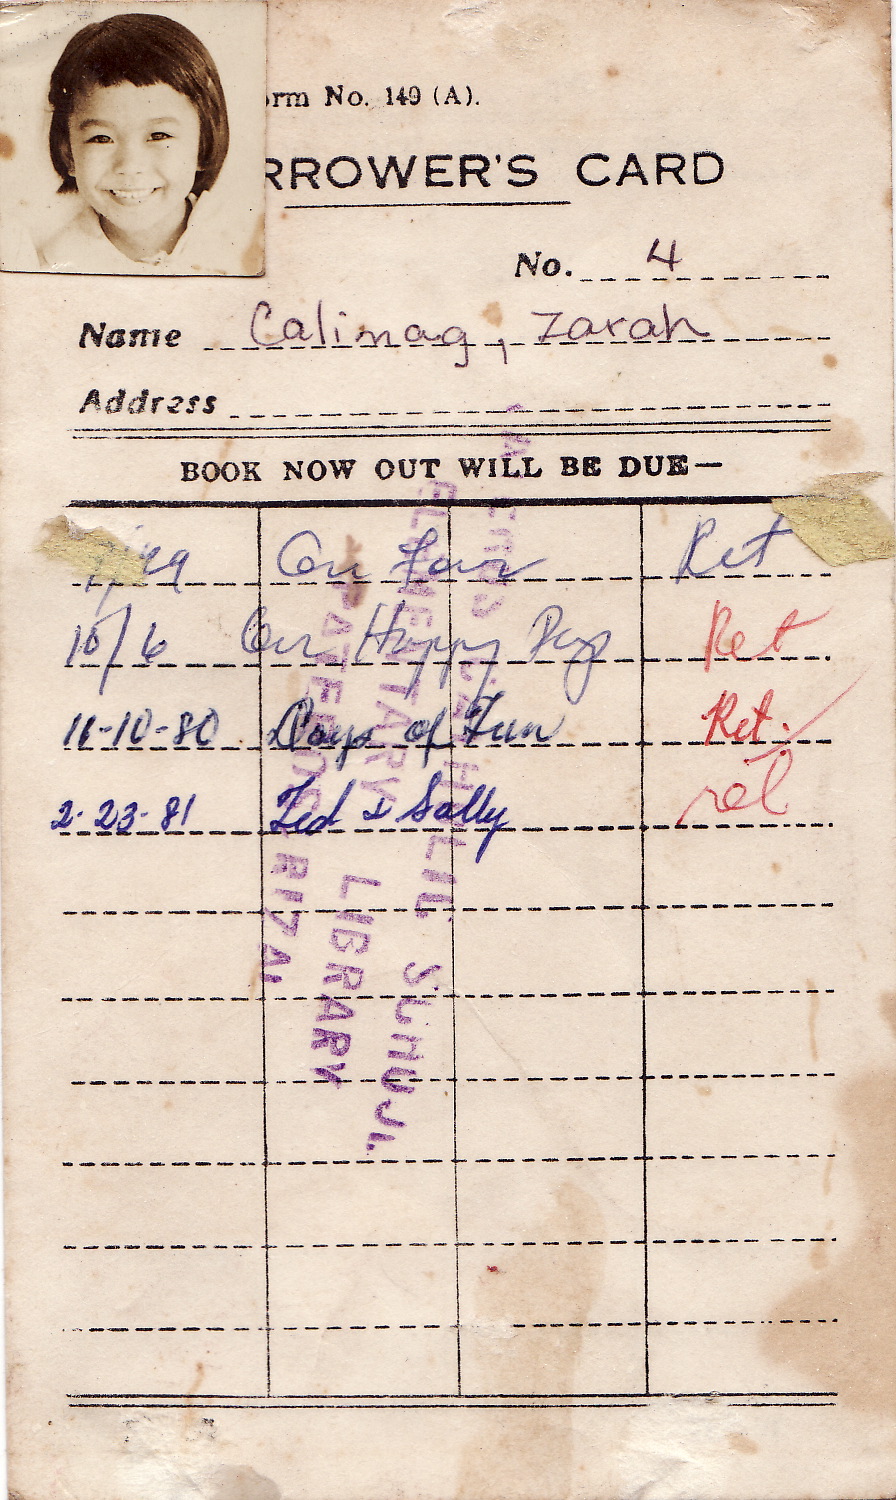 orm No. 149 (A).
RROWER'S CARD
No. 4
Name Calimag, Zarah
Address
BOOK NOW OUT WILL BE DUE—
Ret
10/6 Our Happy Ret
11-10-80 Days of Fun Ret.
2-23-81 Ted & Sally ret
ELEMENTARY
LIBRARY